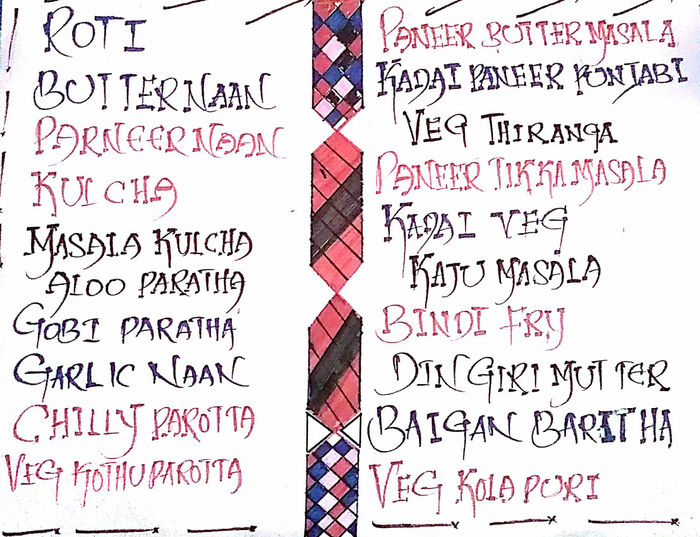 ROTI
BUTTER NAAN
PARNEER NAAN
KULCHA
MASALA KULCHA
ALOO PARATHA
GOBI PARATHA
GARLIC NAAN
CHILLY PAROTTA
VEG KOTHU PAROTTA
PANEER BUTTER MASALA
KADAI PANEER PUNJABI
VEG THIRANGA
PANEER TIKKA MASALA
KADAI VEG
KAJU MASALA
BINDI FRY
DINGIRI MUTTER
BAIGAN BARITHA
VEG KOLAPURI